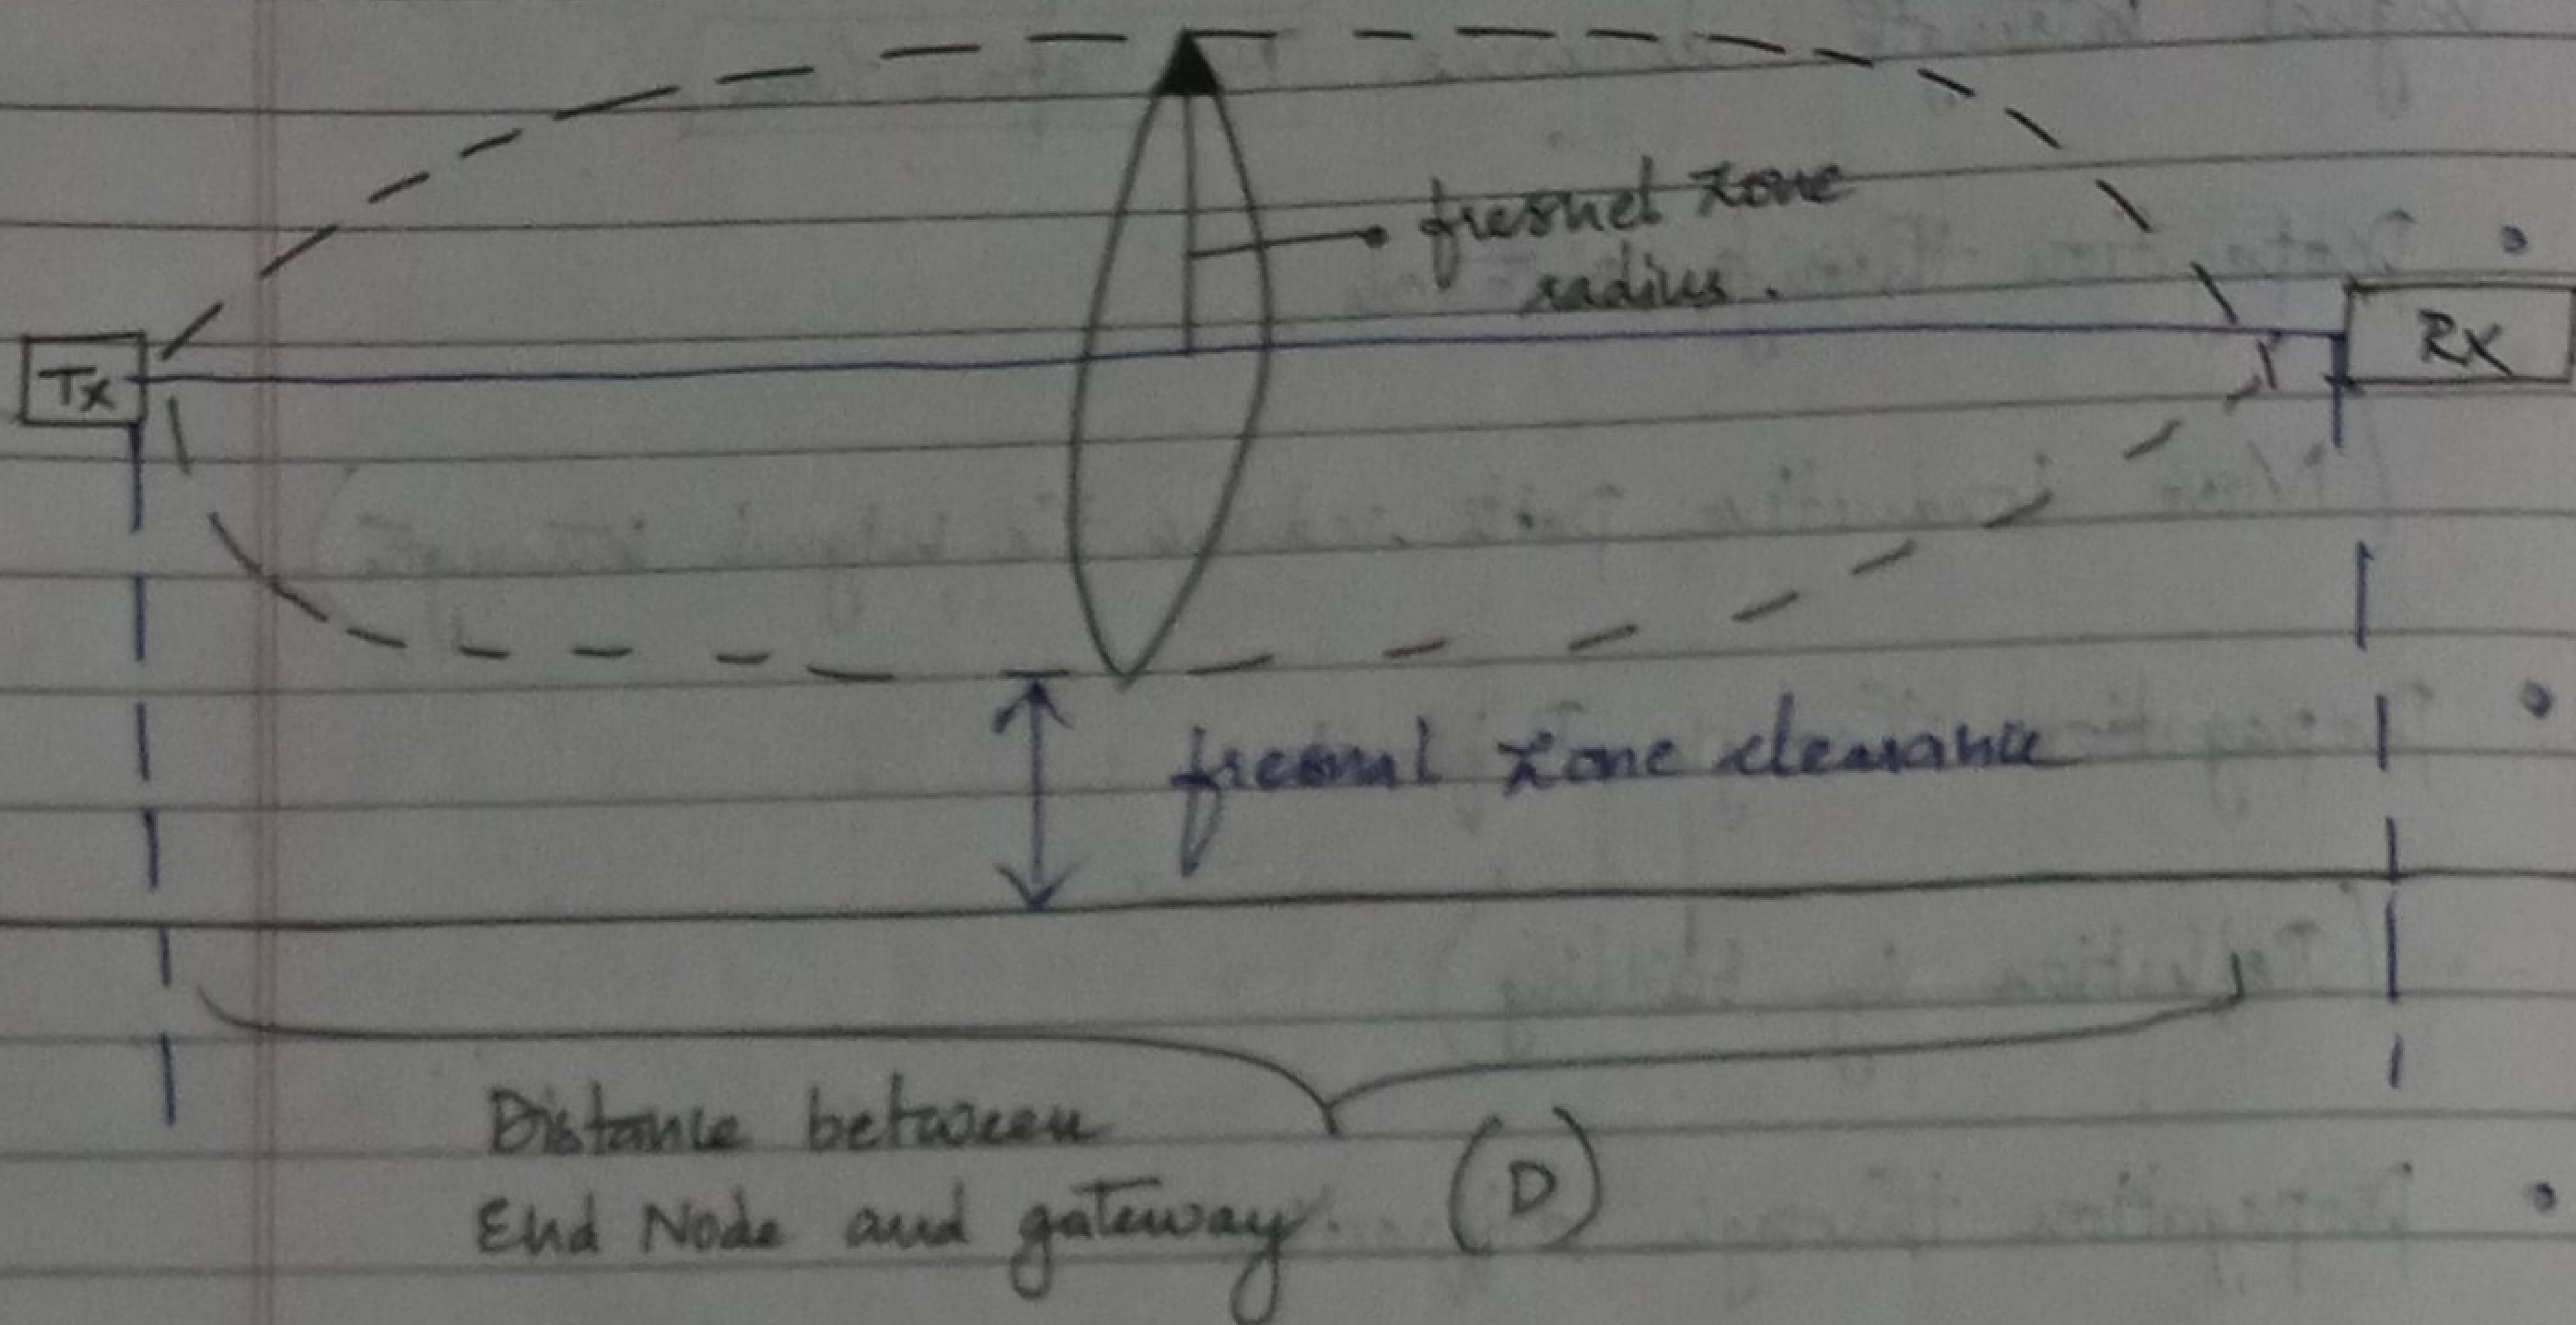 fresnel zone
radius.
Tx
Rx
fresnal zone clearance
Distance between
End Node and gateway.
(D)